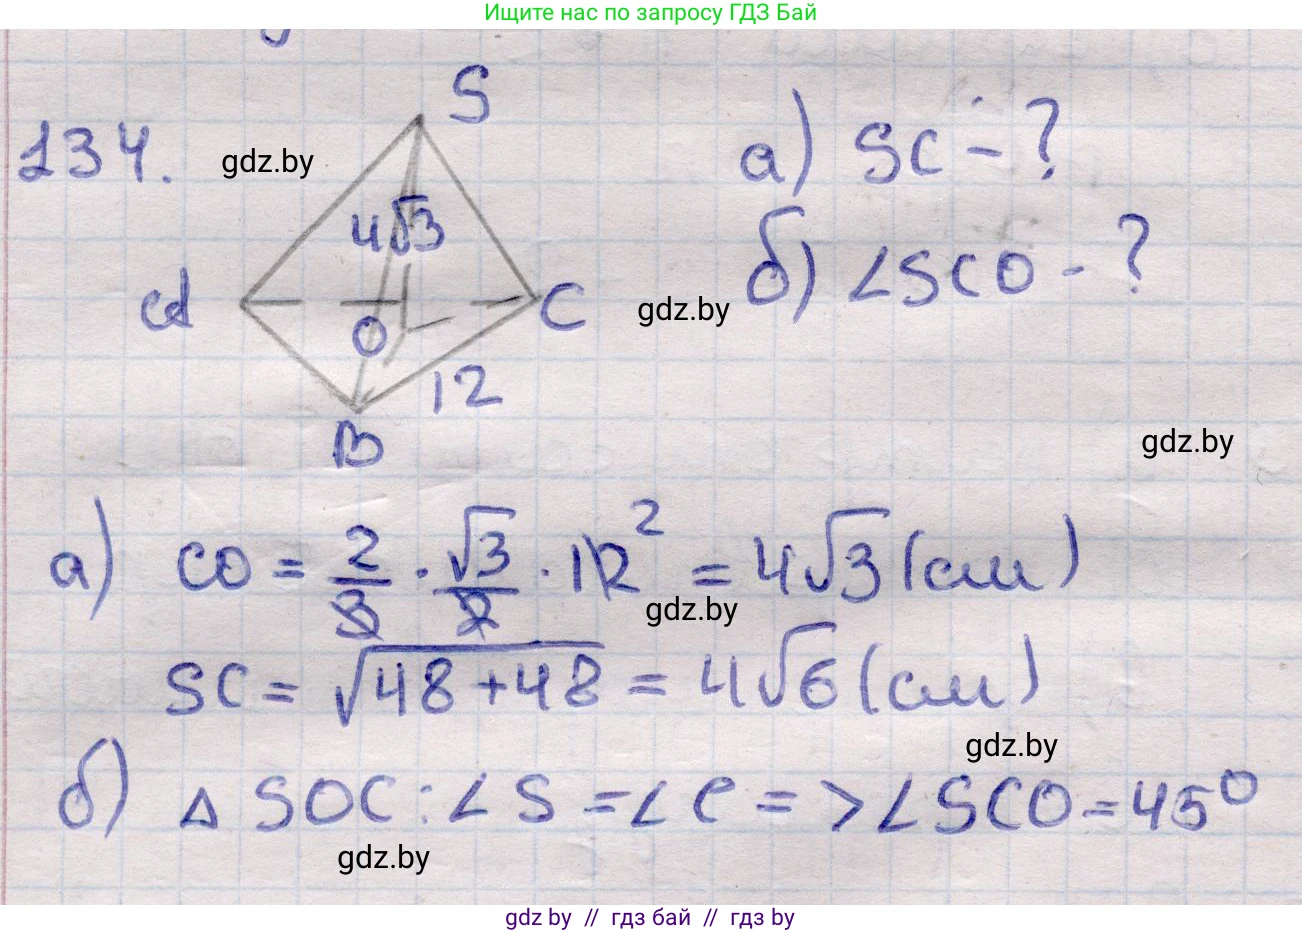 Ищите нас по запросу ГДЗ Бай
134.
gdz.by
S
4√3
A
O
C
12
B
а) SC - ?
б) ∠SCO - ?
gdz.by
gdz.by
а) CO = 2/3 · √3/2 · 12 2 = 4√3 (см)
gdz.by
SC = √48+48 = 4√6 (см)
gdz.by
б) △ SOC: ∠S = ∠C => ∠SCO = 45°
gdz.by
gdz by // гдз бай // гдз by